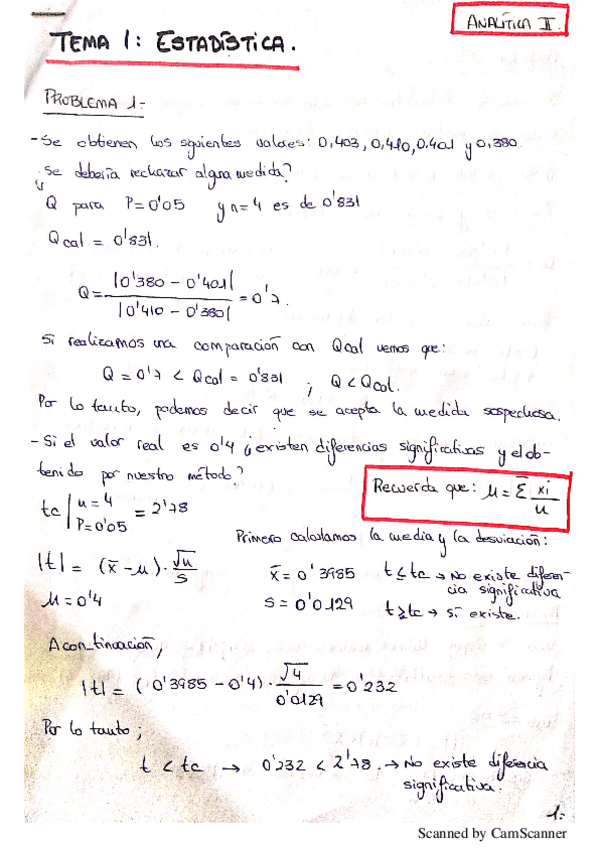 ANALÍTICA II.
TEMA 1: ESTADÍSTICA.
PROBLEMA 1:-
- Se obtienen los siguientes valores: 0,403, 0,410, 0,401 y 0,380.
Se debería rechazar alguna medida?
Q para P=0'05 y n=4 es de 0'831
Qcal = 0'831.
Q = |0'380 - 0'401| / |0'410 - 0'380| = 0'7.
Si realizamos una comparación con Qcal vemos que:
Q = 0'7 < Qcal = 0'831 ; Q < Qcal.
Por lo tanto, podemos decir que se acepta la medida sospechosa.
- Si el valor real es 0'4 ¿existen diferencias significativas y el ob-
tenido por nuestro método?
Recuerda que: μ = Σ xi / n
tc | n = 4 P = 0'05 = 2'78
Primero calculamos la media y la desviación:
|t| = (x̄ - μ) · √n / s
x̄ = 0'3985
t ≤ tc → No existe diferen-
cia significativa
μ = 0'4
s = 0'0129
t ≥ tc → sí existe.
A continuación,
|t| = (0'3985 - 0'4) · √4 / 0'0129 = 0'232
Por lo tanto;
t < tc → 0'232 < 2'78. → No existe diferencia
significativa.
1.
Scanned by CamScanner